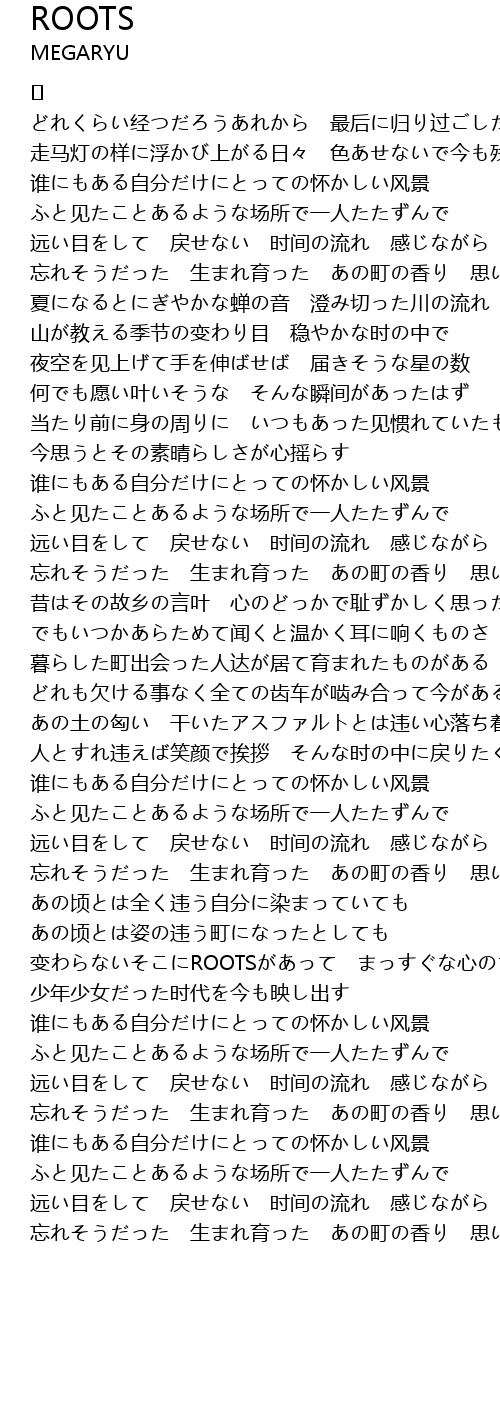 ROOTS
MEGARYU
[]
どれくらい经つだろうあれから　最后に归り过ごした
走马灯の样に浮かび上がる日々　色あせないで今も
谁にもある自分だけにとっての怀かしい风景
ふと见たことあるような场所で一人たたずんで
远い目をして　戻せない　时间の流れ　感じながら
忘れそうだった　生まれ育った　あの町の香り　思い
夏になるとにぎやかな蝉の音　澄み切った川の流れ
山が教える季节の变わり目　稳やかな时の中で
夜空を见上げて手を伸ばせば　届きそうな星の数
何でも愿い叶いそうな　そんな瞬间があったはず
当たり前に身の周りに　いつもあった见惯れていた
今思うとその素晴らしさが心摇らす
谁にもある自分だけにとっての怀かしい风景
ふと见たことあるような场所で一人たたずんで
远い目をして　戻せない　时间の流れ　感じながら
忘れそうだった　生まれ育った　あの町の香り　思い
昔はその故乡の言叶　心のどっかで耻ずかしく思った
でもいつかあらためて闻くと温かく耳に响くものさ
暮らした町出会った人达が居て育まれたものがある
どれも欠ける事なく全ての齿车が啮み合って今がある
あの土の匂い　干いたアスファルトとは违い心落ち着
人とすれ违えば笑颜で挨拶　そんな时の中に戻りたく
谁にもある自分だけにとっての怀かしい风景
ふと见たことあるような场所で一人たたずんで
远い目をして　戻せない　时间の流れ　感じながら
忘れそうだった　生まれ育った　あの町の香り　思い
あの顷とは全く违う自分に染まっていても
あの顷とは姿の违う町になったとしても
变わらないそこにROOTSがあって　まっすぐな心の
少年少女だった时代を今も映し出す
谁にもある自分だけにとっての怀かしい风景
ふと见たことあるような场所で一人たたずんで
远い目をして　戻せない　时间の流れ　感じながら
忘れそうだった　生まれ育った　あの町の香り　思い
谁にもある自分だけにとっての怀かしい风景
ふと见たことあるような场所で一人たたずんで
远い目をして　戻せない　时间の流れ　感じながら
忘れそうだった　生まれ育った　あの町の香り　思い